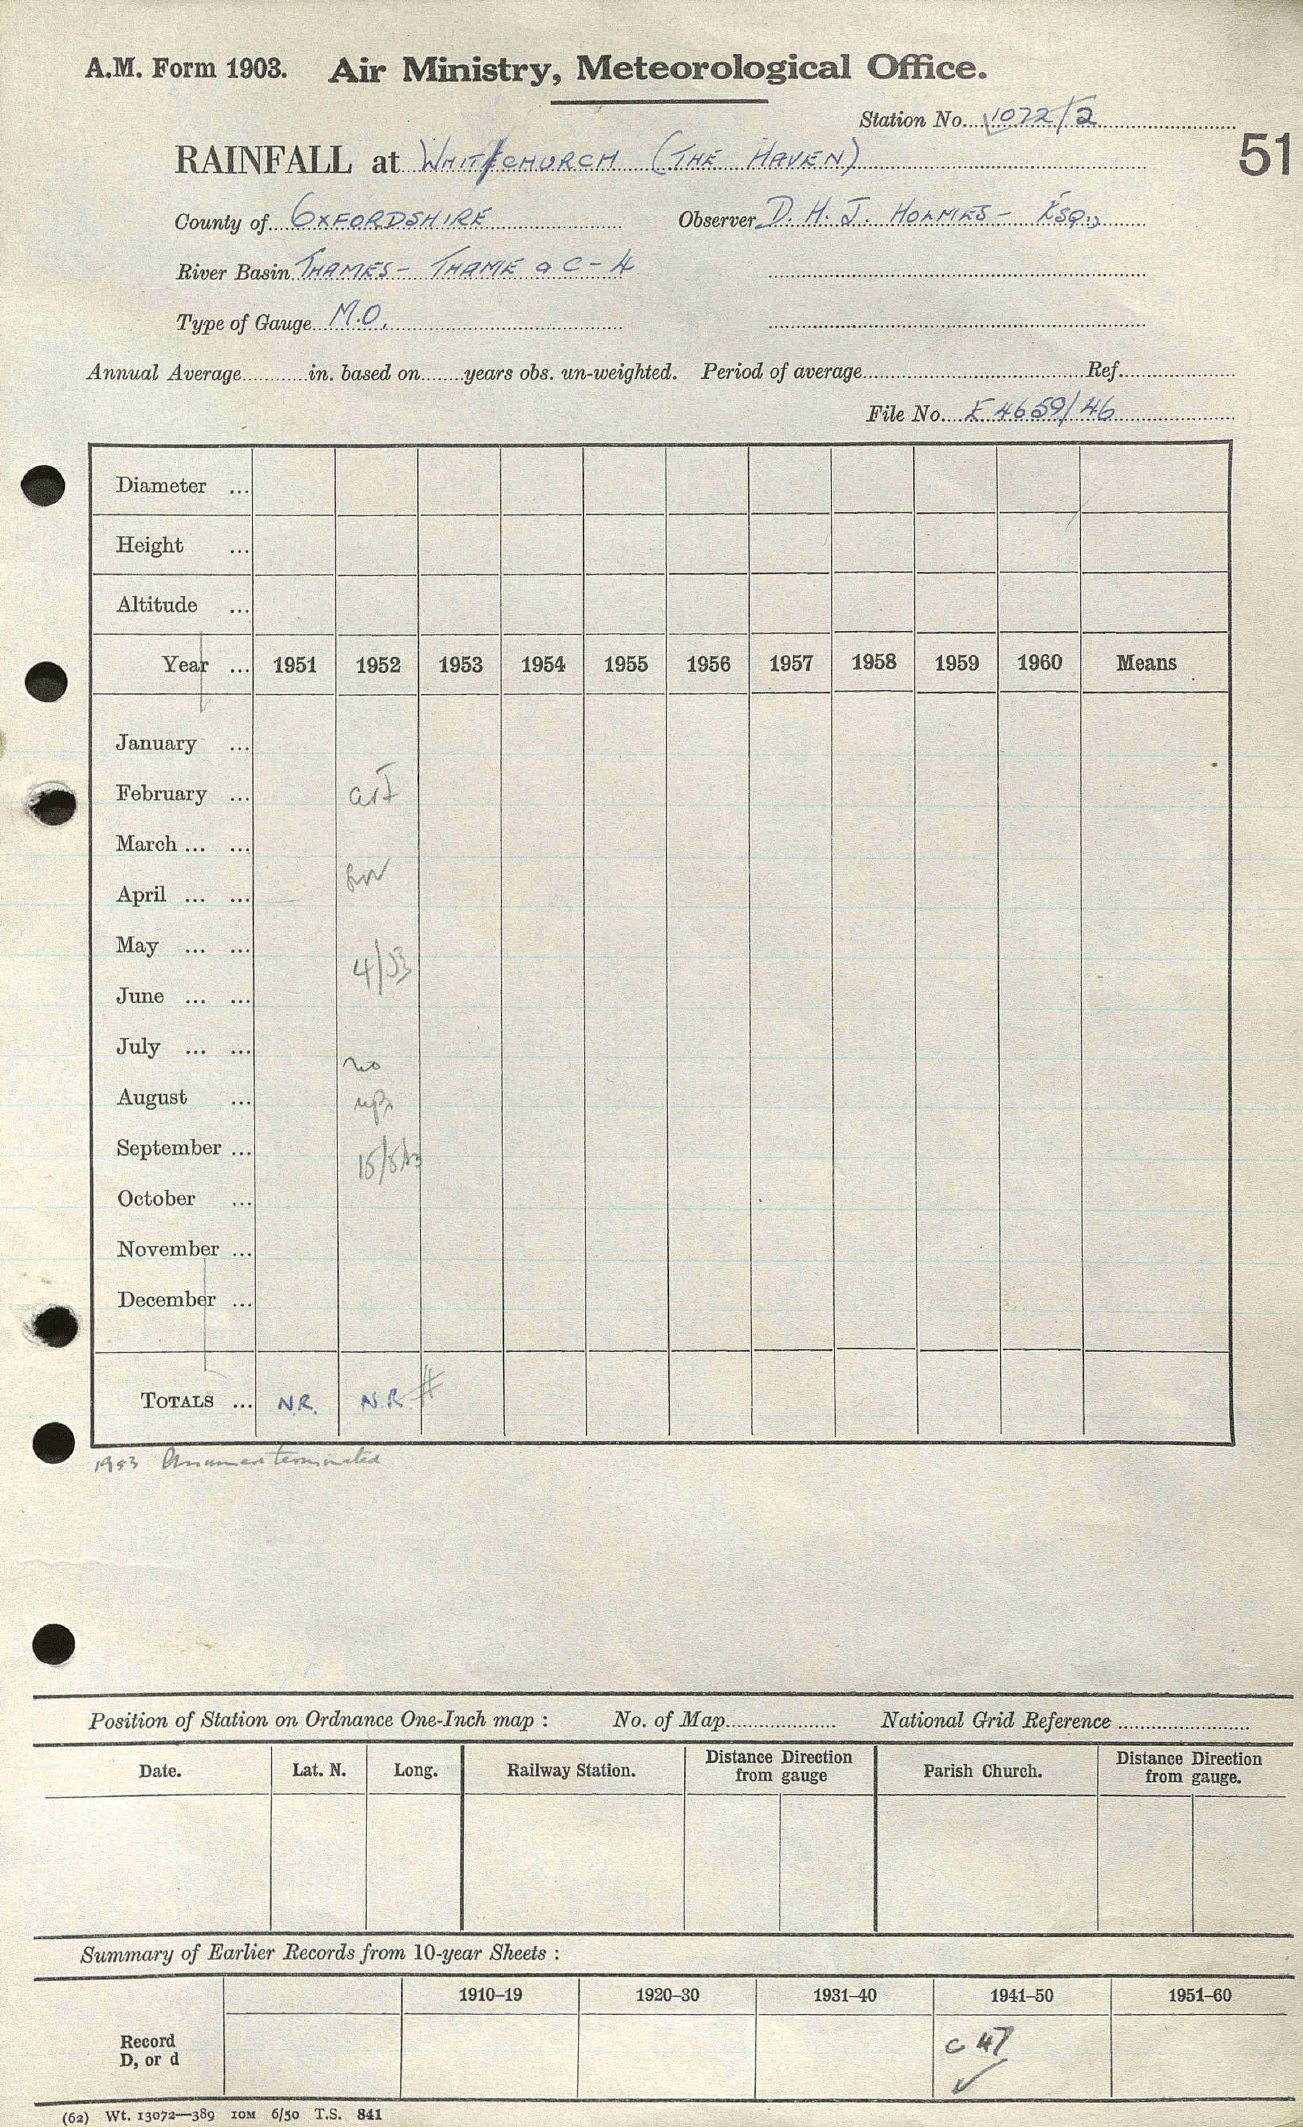 A.M. Form 1903. Air Ministry, Meteorological Office.
Station No. 1072/2
51
RAINFALL at WHITCHURCH (THE HAVEN)
County of OXFORDSHIRE Observer D. H. J. HOLMES- ESQ.,
River Basin THAMES- THAME a C-4
Type of Gauge M.O.
Annual Average in. based on years obs. un-weighted. Period of average Ref.
File No. E 4659/46
Diameter ...
Height ...
Altitude ...
Year ... 1951 1952 1953 1954 1955 1956 1957 1958 1959 1960 Means
January ...
February ...
March ... ...
April ... ...
May ... ...
4/53
June ... ...
July ... ...
no
August ...
September ...
15/5/53
October ...
November ...
December ...
TOTALS ... N.R. N.R. #
1953 terminated
Position of Station on Ordnance One-Inch map : No. of Map National Grid Reference
Date. Lat. N. Long. Railway Station. Distance Direction from gauge Parish Church. Distance Direction from gauge.
Summary of Earlier Records from 10-year Sheets :
1910–19 1920–30 1931–40 1941–50 1951–60
Record D, or d
c 47 ✓
(62) Wt. 13072—389 10M 6/50 T.S. 841